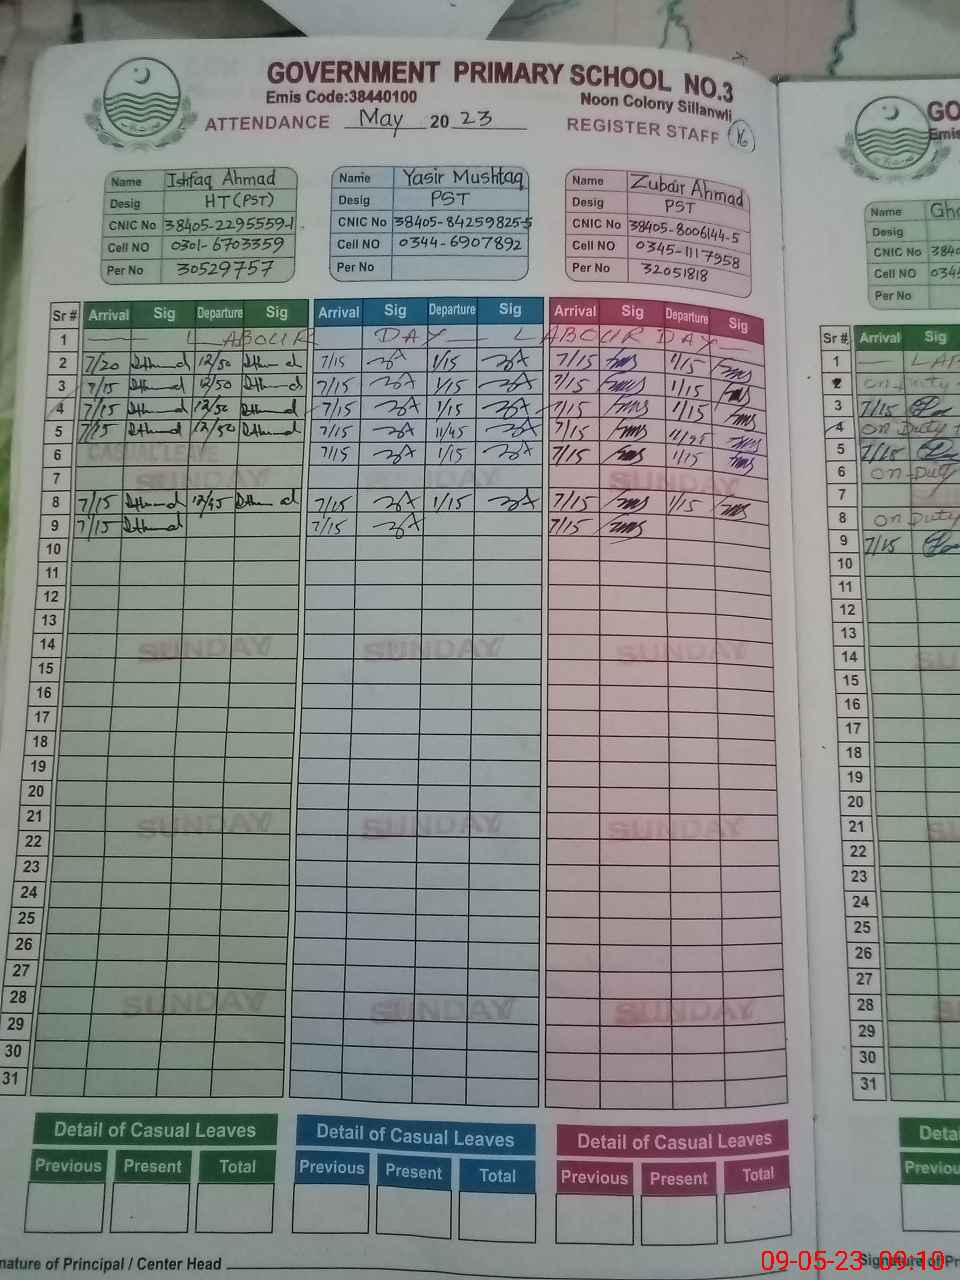 GOVERNMENT PRIMARY SCHOOL NO.3
Emis Code:38440100
Noon Colony Sillanwli
ATTENDANCE May 2023 REGISTER STAFF 16
Name Ishfaq Ahmad
Desig HT(PST)
CNIC No 38405-2295559-1
Cell NO 0301-6703359
Per No 30529757
Name Yasir Mushtaq
Desig PST
CNIC No 38405-84259825-5
Cell NO 0344-6907892
Per No
Name Zubair Ahmad
Desig PST
CNIC No 38405-8006144-5
Cell NO 0345-1117958
Per No 32051818
Sr # Arrival Sig Departure Sig Arrival Sig Departure Sig Arrival Sig Departure Sig
1 LABOUR DAY LABOUR DAY
2 7/20 12/50 7/15 1/15 7/15 1/15
3 7/15 12/50 7/15 1/15 7/15 1/15
4 7/15 12/50 7/15 1/15 7/15 1/15
5 7/15 12/50 7/15 11/45 7/15
6 CASUAL LEAVE 7/15 1/15 7/15 1/15
7 SUNDAY SUNDAY SUNDAY
8 7/15 12/45 7/15 1/15 7/15 1/15
9 7/15 7/15 7/15
10
11
12
13
14 SUNDAY SUNDAY SUNDAY
15
16
17
18
19
20
21 SUNDAY SUNDAY SUNDAY
22
23
24
25
26
27
28 SUNDAY SUNDAY SUNDAY
29
30
31
Detail of Casual Leaves Detail of Casual Leaves Detail of Casual Leaves
Previous Present Total Previous Present Total Previous Present Total
nature of Principal / Center Head
GO
Emis
Name Gh
Desig
CNIC No 384
Cell NO 034
Per No
Sr # Arrival Sig
1 LA
on-Duty
3 7/15
4 on Duty
5 7/15
6 on-Duty
7
8 on Duty
9 7/15
10
11
12
13
14
15
16
17
18
19
20
21
22
23
24
25
26
27
28
29
30
31
Deta
Previou
Signature of Pr
09-05-23 09:10